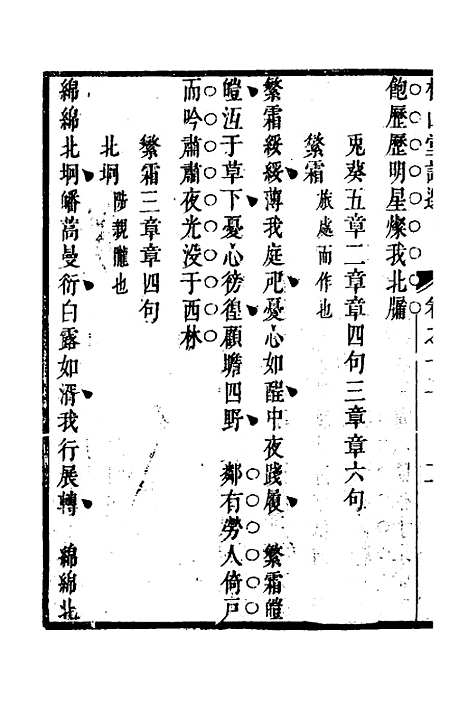 飽歷歷明星燦我北牖
兎葵五章二章章四句三章章六句
繁霜 旅處而作也
繁霜綏綏薄我庭戺憂心如酲中夜踐履 繁霜皚
皚沍于草下憂心徬徨顧瞻四野 鄰有勞人倚戸
而吟肅肅夜光没于西林
繁霜三章章四句
北坰 陟親隴也
綿綿北坰皤蒿曼衍白露如湑我行展轉 綿綿北